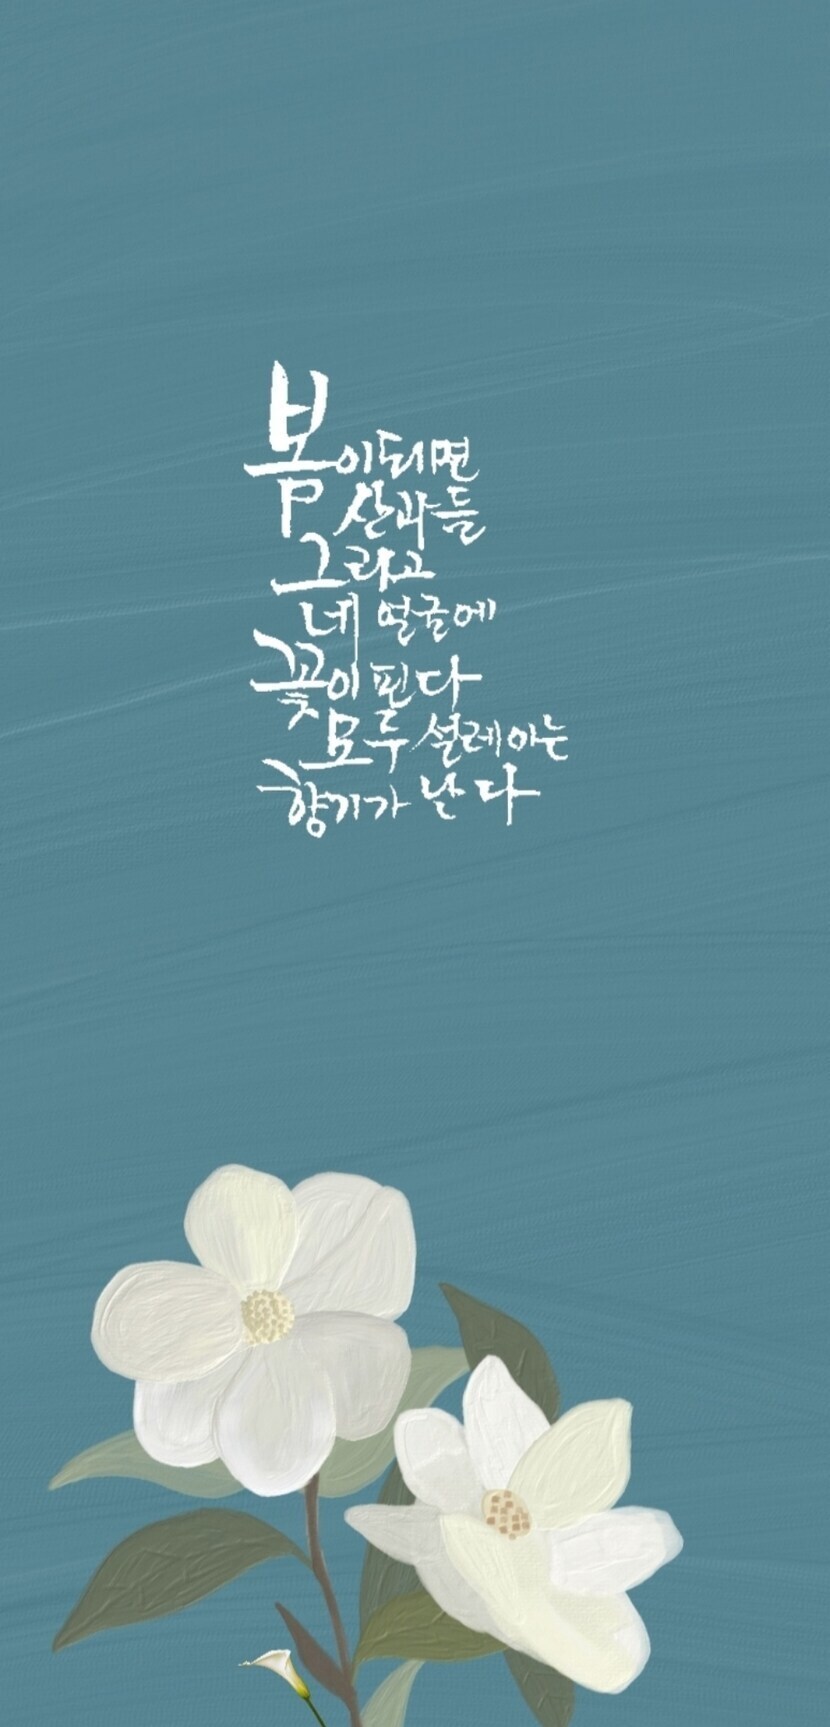 봄이되면
산과들
그리고
네 얼굴에
꽃이 핀다
모두 설레이는
향기가 난다